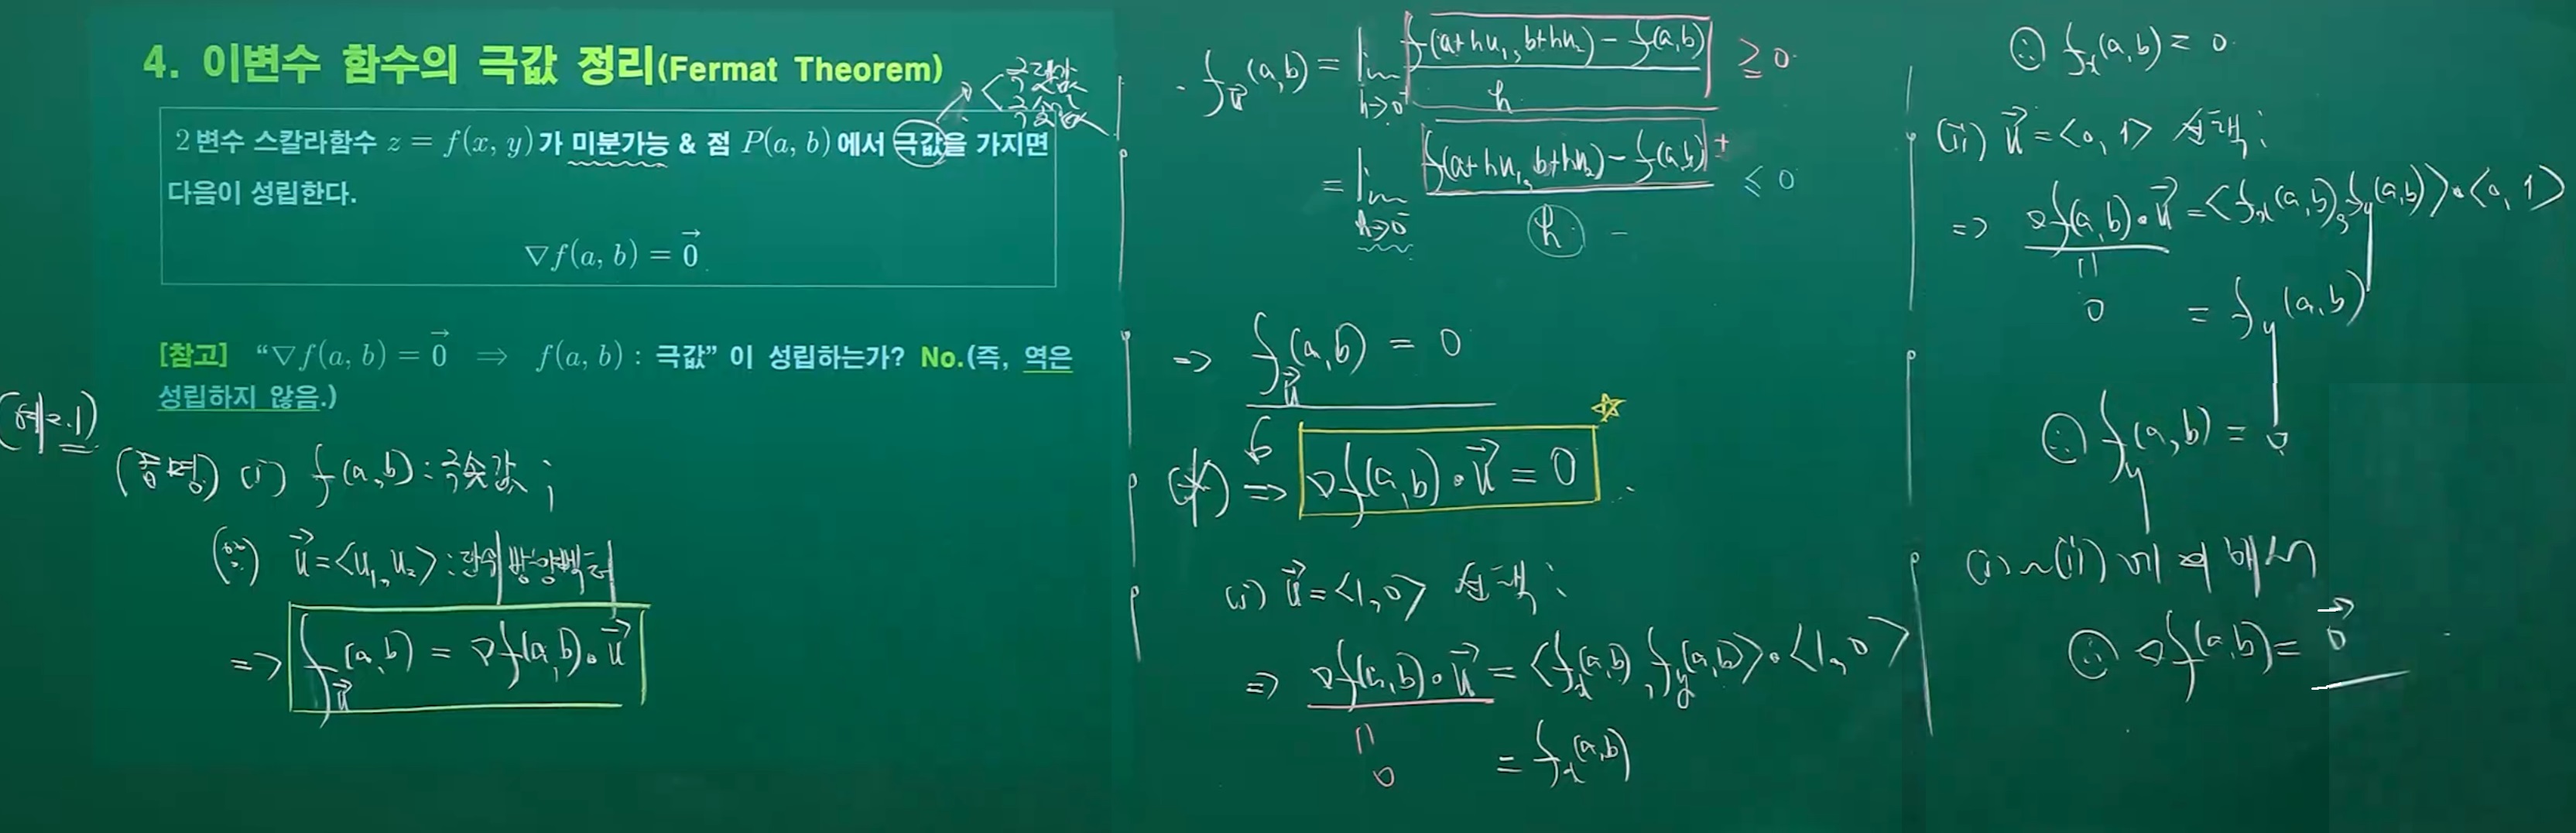 4. 이변수 함수의 극값 정리(Fermat Theorem)
극댓값
극솟값
2변수 스칼라함수 z = f(x, y)가 미분가능 & 점 P(a, b)에서 극값을 가지면
다음이 성립한다.
∇f(a, b) = \vec{0}
[참고] “∇f(a, b) = \vec{0} ⟹ f(a, b) : 극값” 이 성립하는가? No.(즉, 역은
성립하지 않음.)
(증명) (i) f(a,b) : 극솟값 ;
\vec{u} = <u₁, u₂> : 단위방향벡터
=> f_{\vec{u}}(a,b) = ∇f(a,b)·\vec{u}
f_{\vec{u}}(a,b) = lim_{h→0⁺} (f(a+hu₁, b+hu₂) − f(a,b))/h ≥ 0
= lim_{h→0⁻} (f(a+hu₁, b+hu₂) − f(a,b))/h ≤ 0
+
−
=> f_{\vec{u}}(a,b) = 0
(*) => ∇f(a,b)·\vec{u} = 0 ☆
(i) \vec{u} = <1, 0> 선택 ;
=> ∇f(a,b)·\vec{u} = <f_x(a,b), f_y(a,b)>·<1, 0>
|| 0 = f_x(a,b)
∴ f_x(a,b) = 0
(ii) \vec{u} = <0, 1> 선택 ;
=> ∇f(a,b)·\vec{u} = <f_x(a,b), f_y(a,b)>·<0, 1>
|| 0 = f_y(a,b)
∴ f_y(a,b) = 0
(i)~(ii)에 의해서
∴ ∇f(a,b) = \vec{0}